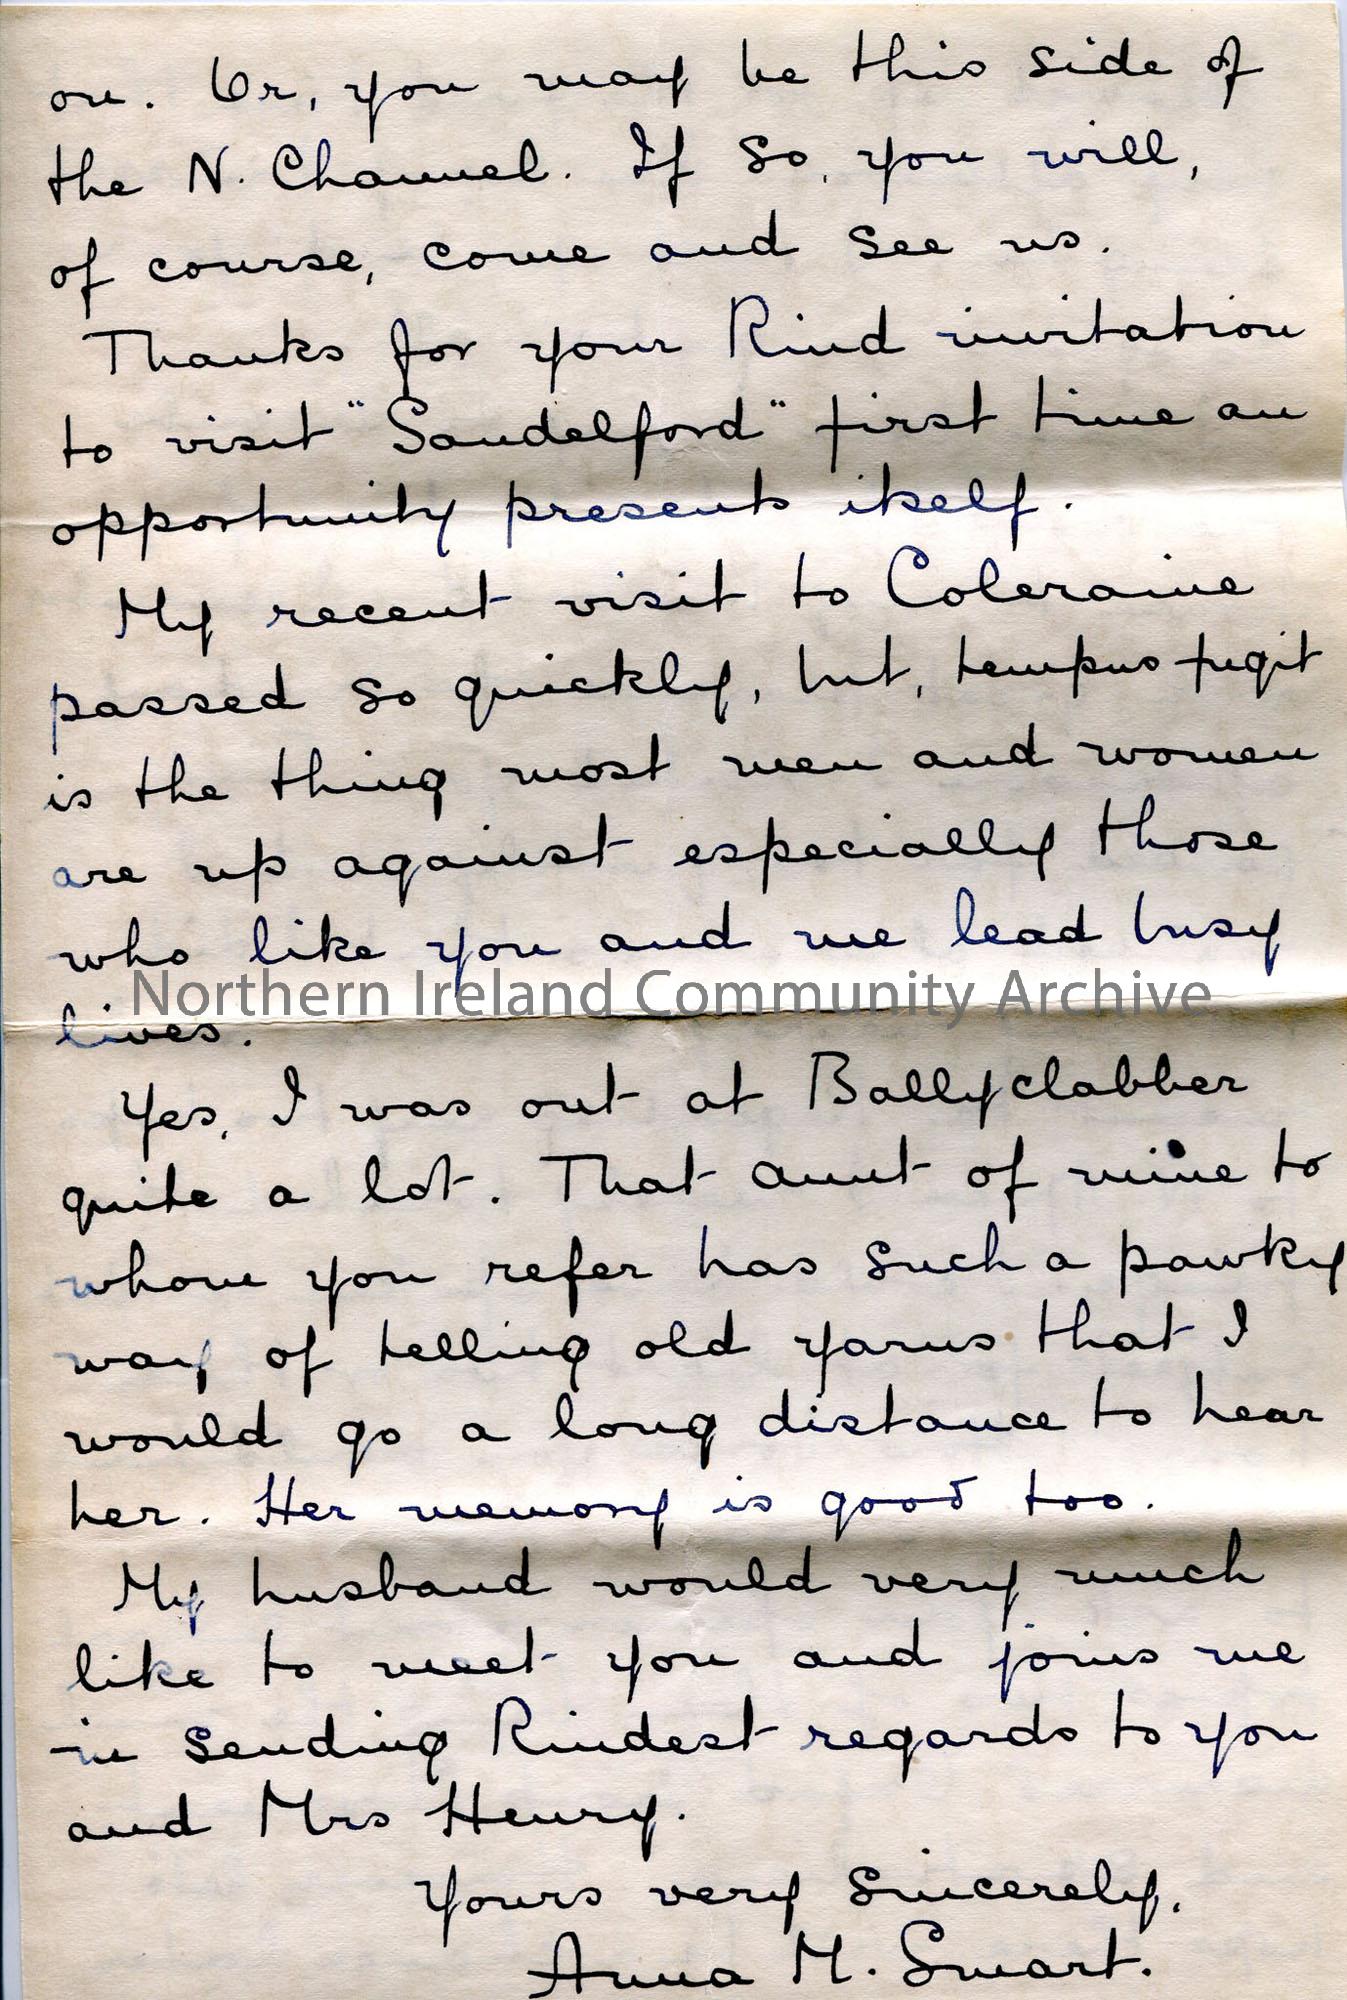 on. Or, you may be this side of
the N. Channel. If so, you will,
of course, come and see us.
Thanks for your kind invitation
to visit "Sandelford" first time an
opportunity presents itself.
My recent visit to Coleraine
passed so quickly, but, tempus fugit
is the thing most men and women
are up against especially those
who like you and me lead busy
Northern Ireland Community Archive
lives.
Yes, I was out at Ballyclabber
quite a lot. That aunt of mine to
whom you refer has such a pawky
way of telling old yarns that I
would go a long distance to hear
her. Her memory is good too.
My husband would very much
like to meet you and joins me
in sending kindest regards to you
and Mrs Henry.
Yours very sincerely,
Anna M. Smart.